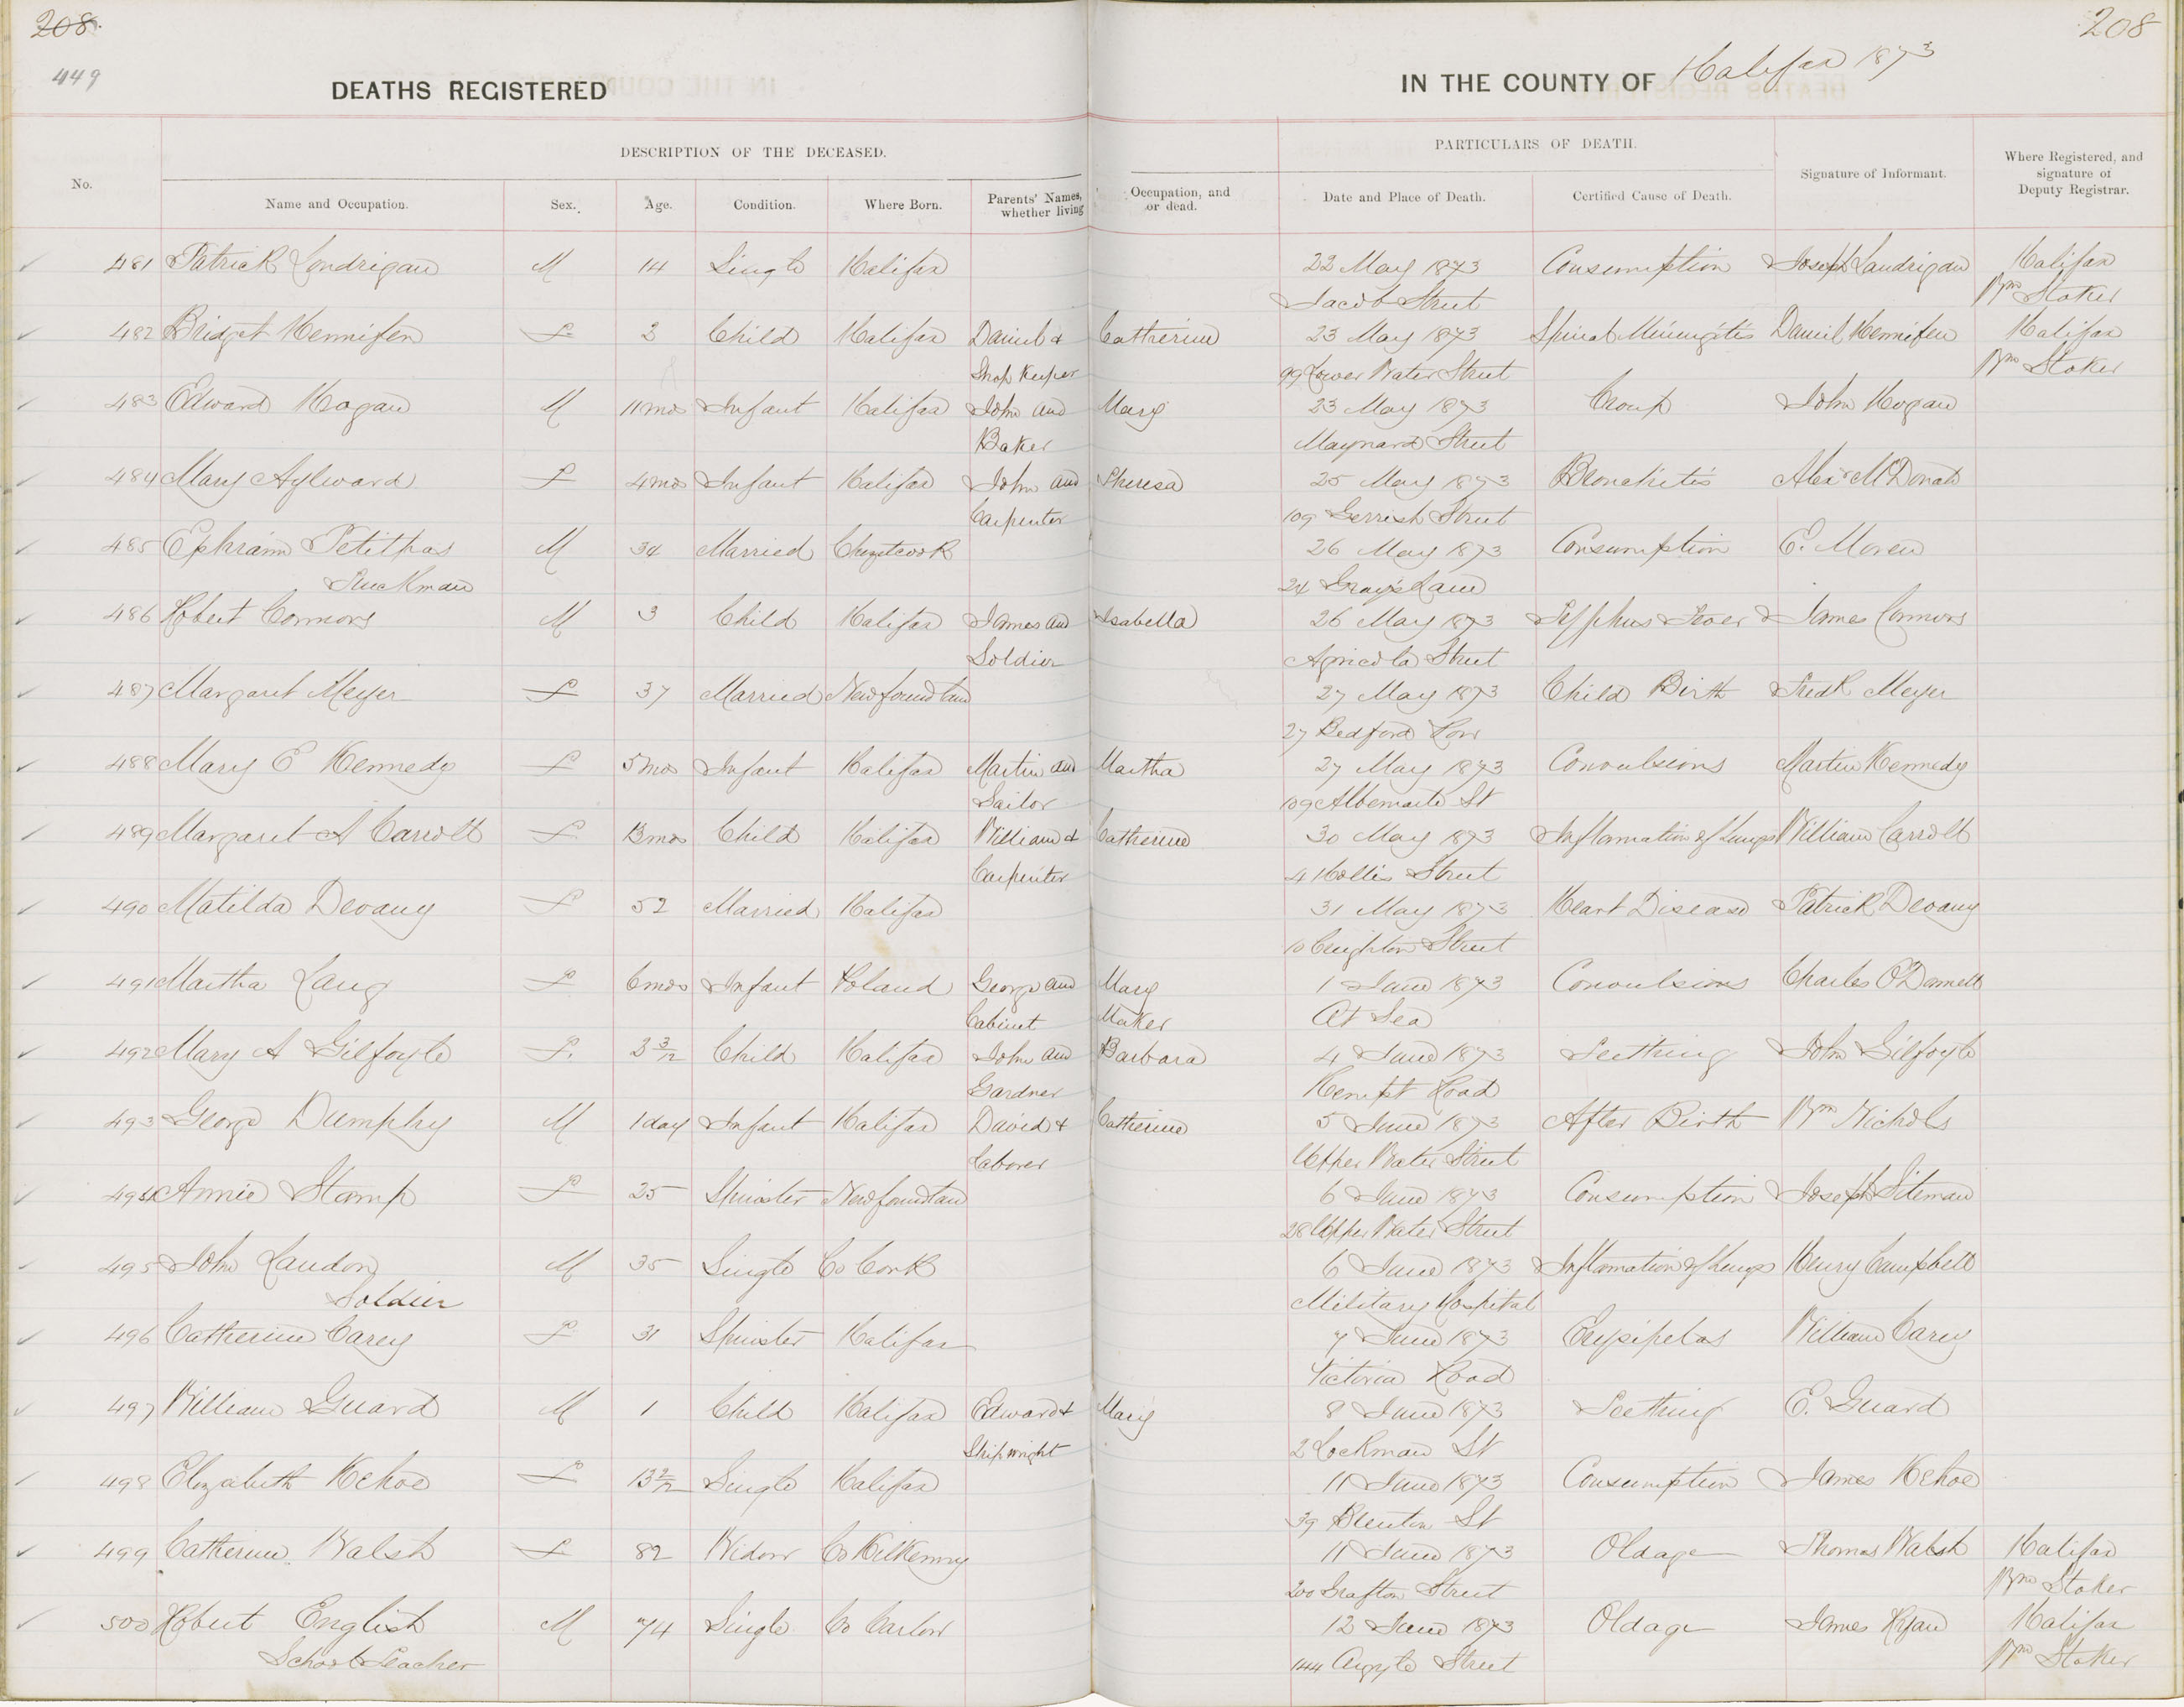 208.
208
449
DEATHS REGISTERED
IN THE COUNTY OF Halifax 1873
DESCRIPTION OF THE DECEASED.
PARTICULARS OF DEATH.
No.
Name and Occupation.
Sex.
Age.
Condition.
Where Born.
Parents' Names, whether living
Occupation, and or dead.
Date and Place of Death.
Certified Cause of Death.
Signature of Informant.
Where Registered, and signature of Deputy Registrar.
481 Patrick Londrigan M 14 Single Halifax 22 May 1873 Consumption Joseph Landrigan Halifax
Jacob Street Wm Stoker
482 Bridget Hennifen F 3 Child Halifax Daniel & Catherine 23 May 1873 Spinal Miningitis Daniel Hennifen Halifax
Shop Keeper 99 Lower Water Street Wm Stoker
483 Edward Hogan M 11 mos Infant Halifax John and Mary 23 May 1873 Croup John Hogan
Baker Maynard Street
484 Mary Aylward F 4 mos Infant Halifax John and Theresa 25 May 1873 Bronchitis Alexr McDonald
Carpenter 109 Gerrish Street
485 Ephraim Petitpas M 34 Married Chezetcook 26 May 1873 Consumption E. Moren
Truckman 24 Gray's Lane
486 Robert Connors M 3 Child Halifax James and Isabella 26 May 1873 Typhus Fever James Connors
Soldier Agricola Street
487 Margaret Meyer F 37 Married Newfoundland 27 May 1873 Child Birth Fredk Meyer
27 Bedford Row
488 Mary E Kennedy F 5 mos Infant Halifax Martin and Martha 27 May 1873 Convulsions Martin Kennedy
Sailor 109 Albemarle St
489 Margaret A Carroll F 13 mos Child Halifax William & Catherine 30 May 1873 Inflamation of Lungs William Carroll
Carpenter 4 Hollis Street
490 Matilda Devany F 52 Married Halifax 31 May 1873 Heart Disease Patrick Devany
10 Creighton Street
491 Martha Lang F 6 mos Infant Poland George and Mary 1 June 1873 Convulsions Charles O'Donnell
Cabinet Maker At Sea
492 Mary A Gilfoyle F. 3 3/12 Child Halifax John and Barbara 4 June 1873 Teething John Gilfoyle
Gardner Kempt Road
493 George Dumphy M 1 day Infant Halifax David & Catherine 5 June 1873 After Birth Wm Nichols
Laborer Upper Water Street
494 Annie Stamp F 25 Spinster Newfoundland 6 June 1873 Consumption Joseph Siteman
28 Upper Water Street
495 John Landon M 35 Single Co Cork 6 June 1873 Inflamation of Lungs Henry Campbell
Soldier Military Hospital
496 Catherine Carey F 31 Spinster Halifax 7 June 1873 Erysipelas William Carey
Victoria Road
497 William Guard M 1 Child Halifax Edward & Mary 8 June 1873 Teething E. Guard
Shipwright 2 Lockman St
498 Elizabeth Kehoe F 13 2/12 Single Halifax 11 June 1873 Consumption James Kehoe
39 Brenton St
499 Catherine Walsh F 82 Widow Co Kilkenny 11 June 1873 Oldage Thomas Walsh Halifax
200 Grafton Street Wm Stoker
500 Robert English M 74 Single Co Carlow 12 June 1873 Oldage James Ryan Halifax
School Teacher 144 Argyle Street Wm Stoker